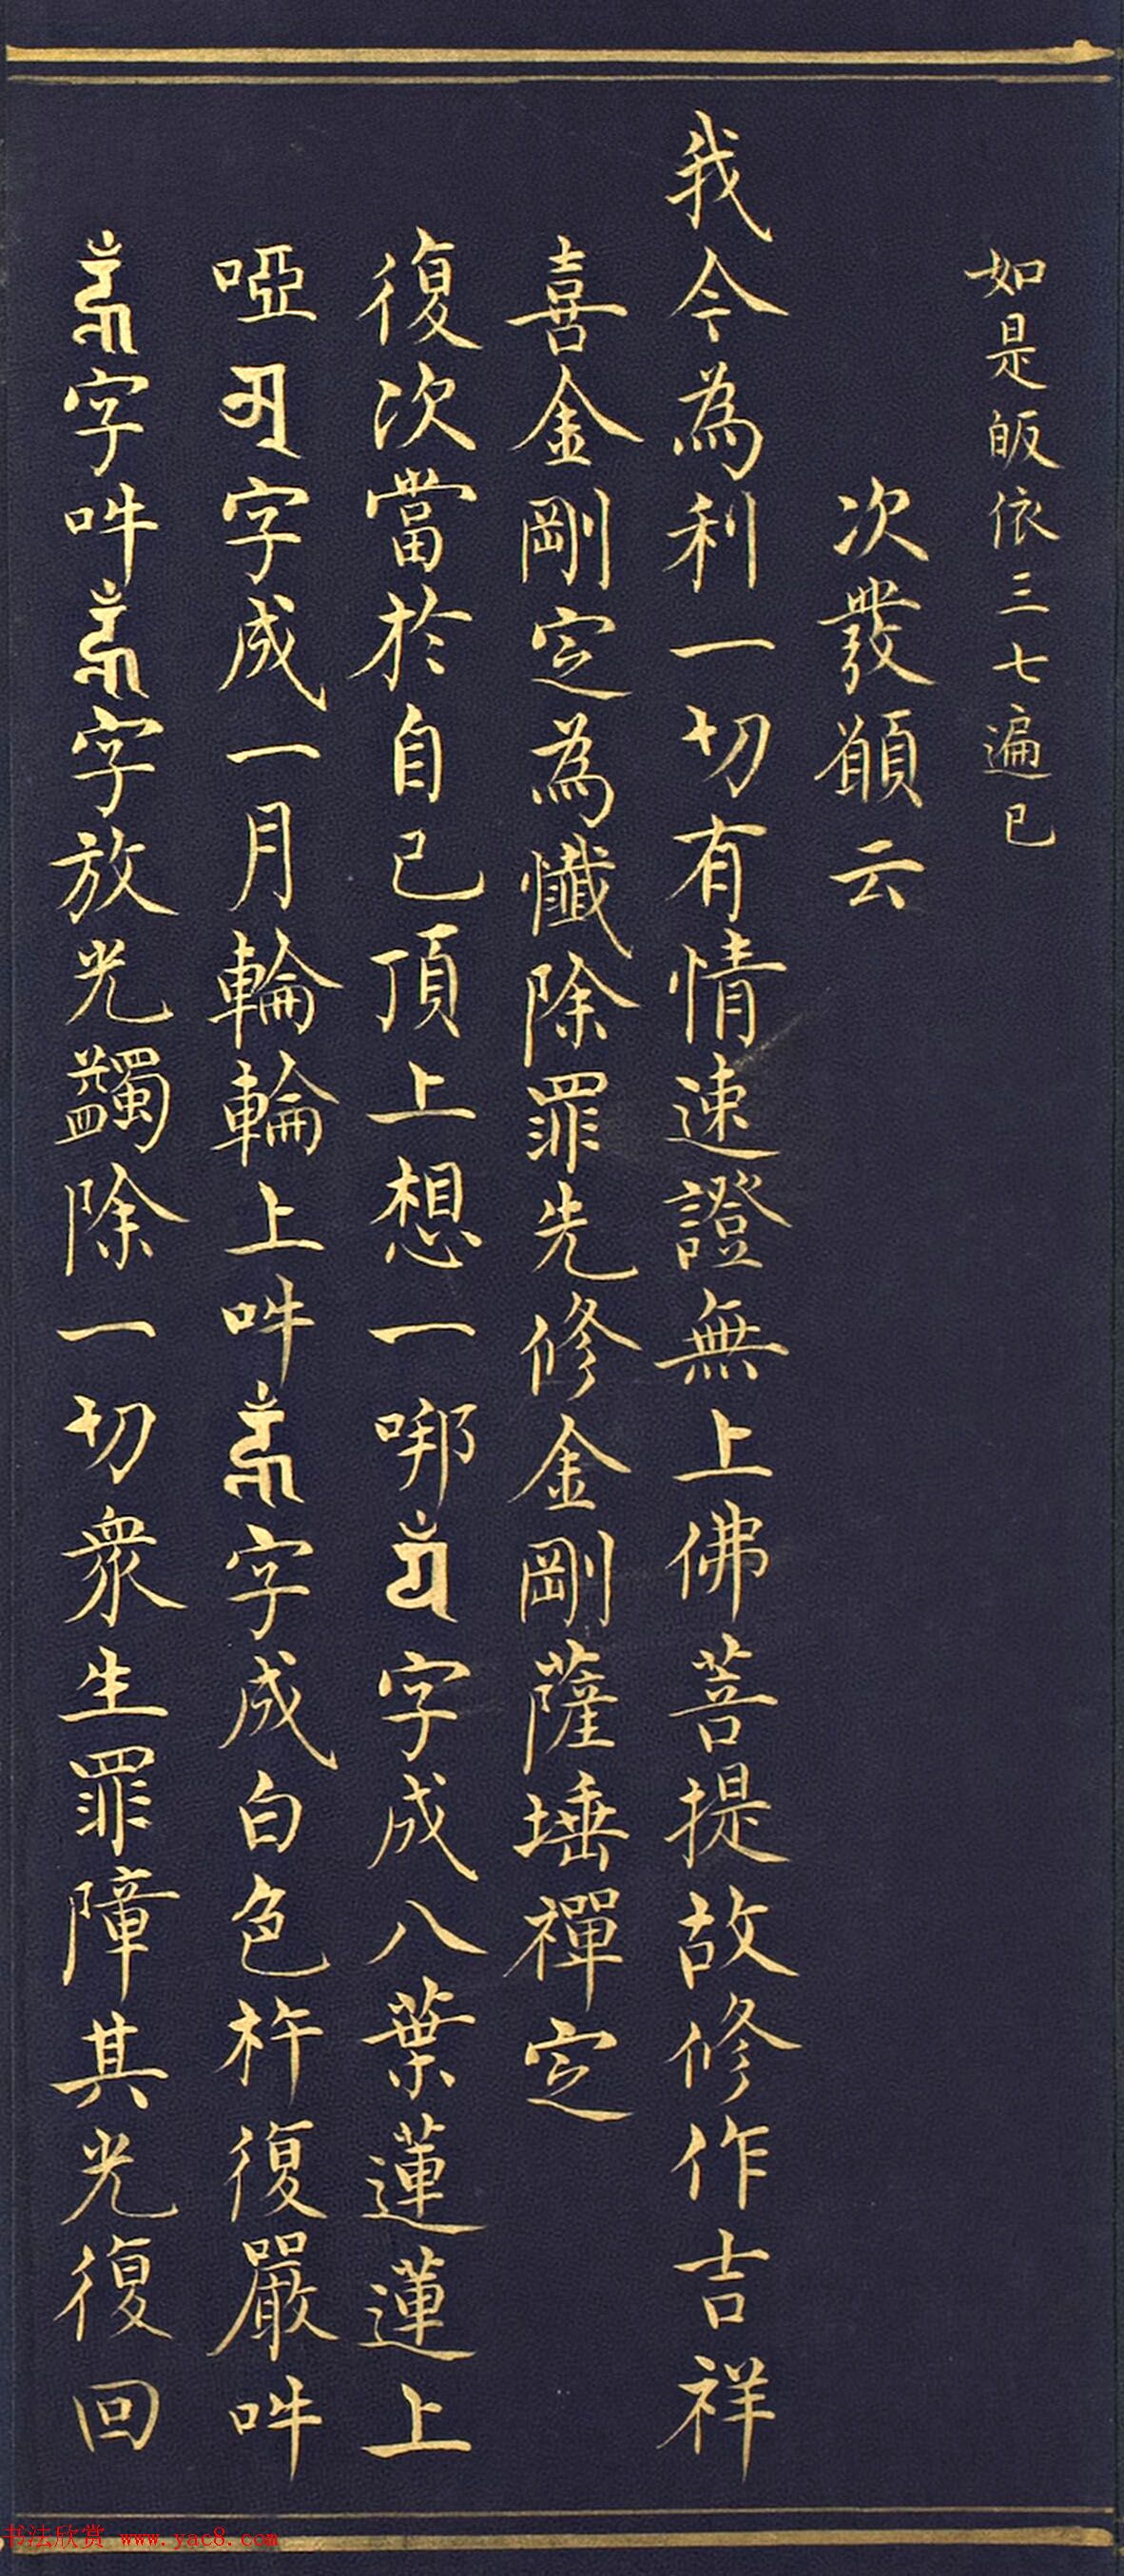 如是皈依三七遍已
次發願云
我今為利一切有情速證無上佛菩提故修作吉祥
喜金剛定為懺除罪先修金剛薩埵禪定
復次當於自己頂上想一𠳐字成八葉蓮蓮上
啞字成一月輪輪上吽字成白色杵復嚴吽
字吽字放光蠲除一切衆生罪障其光復回
书法欣赏 www.yac8.com